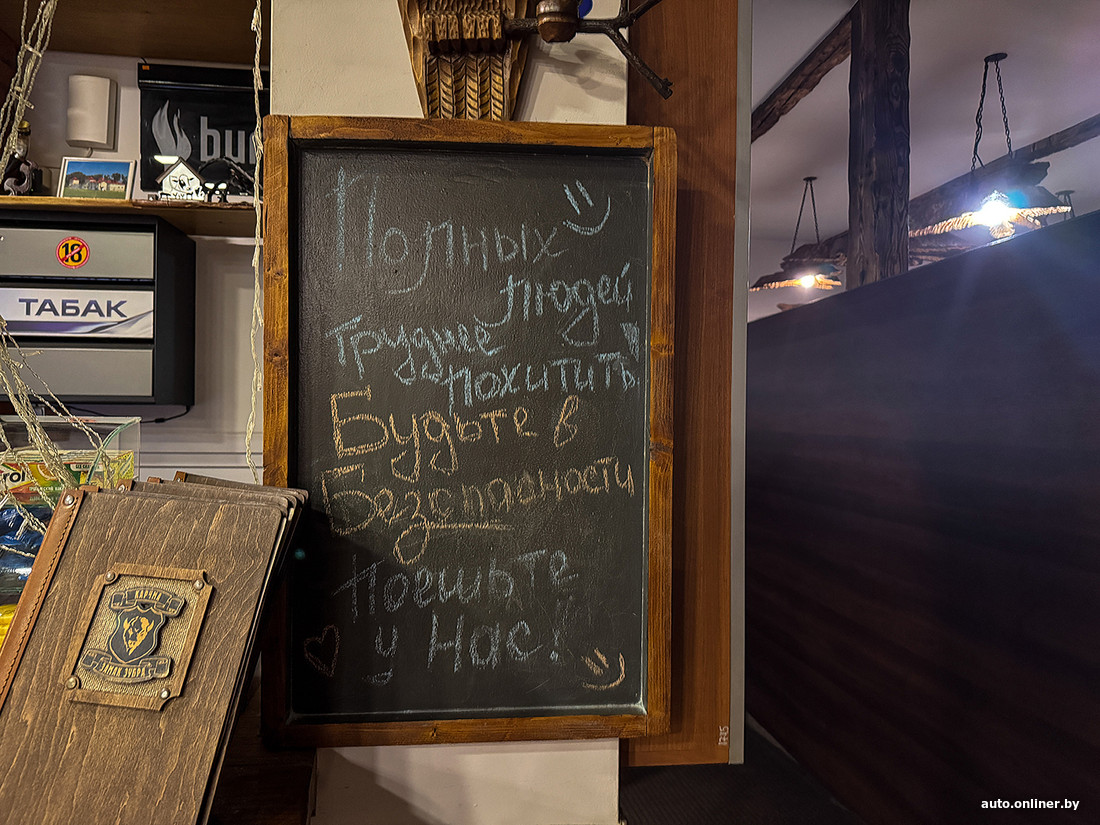 bu
18
ТАБАК
Полных
людей
Труднее
похитить.
Будьте в
Безопасности
Поешьте
у Нас!
КАРЧМА
1715
auto.onliner.by